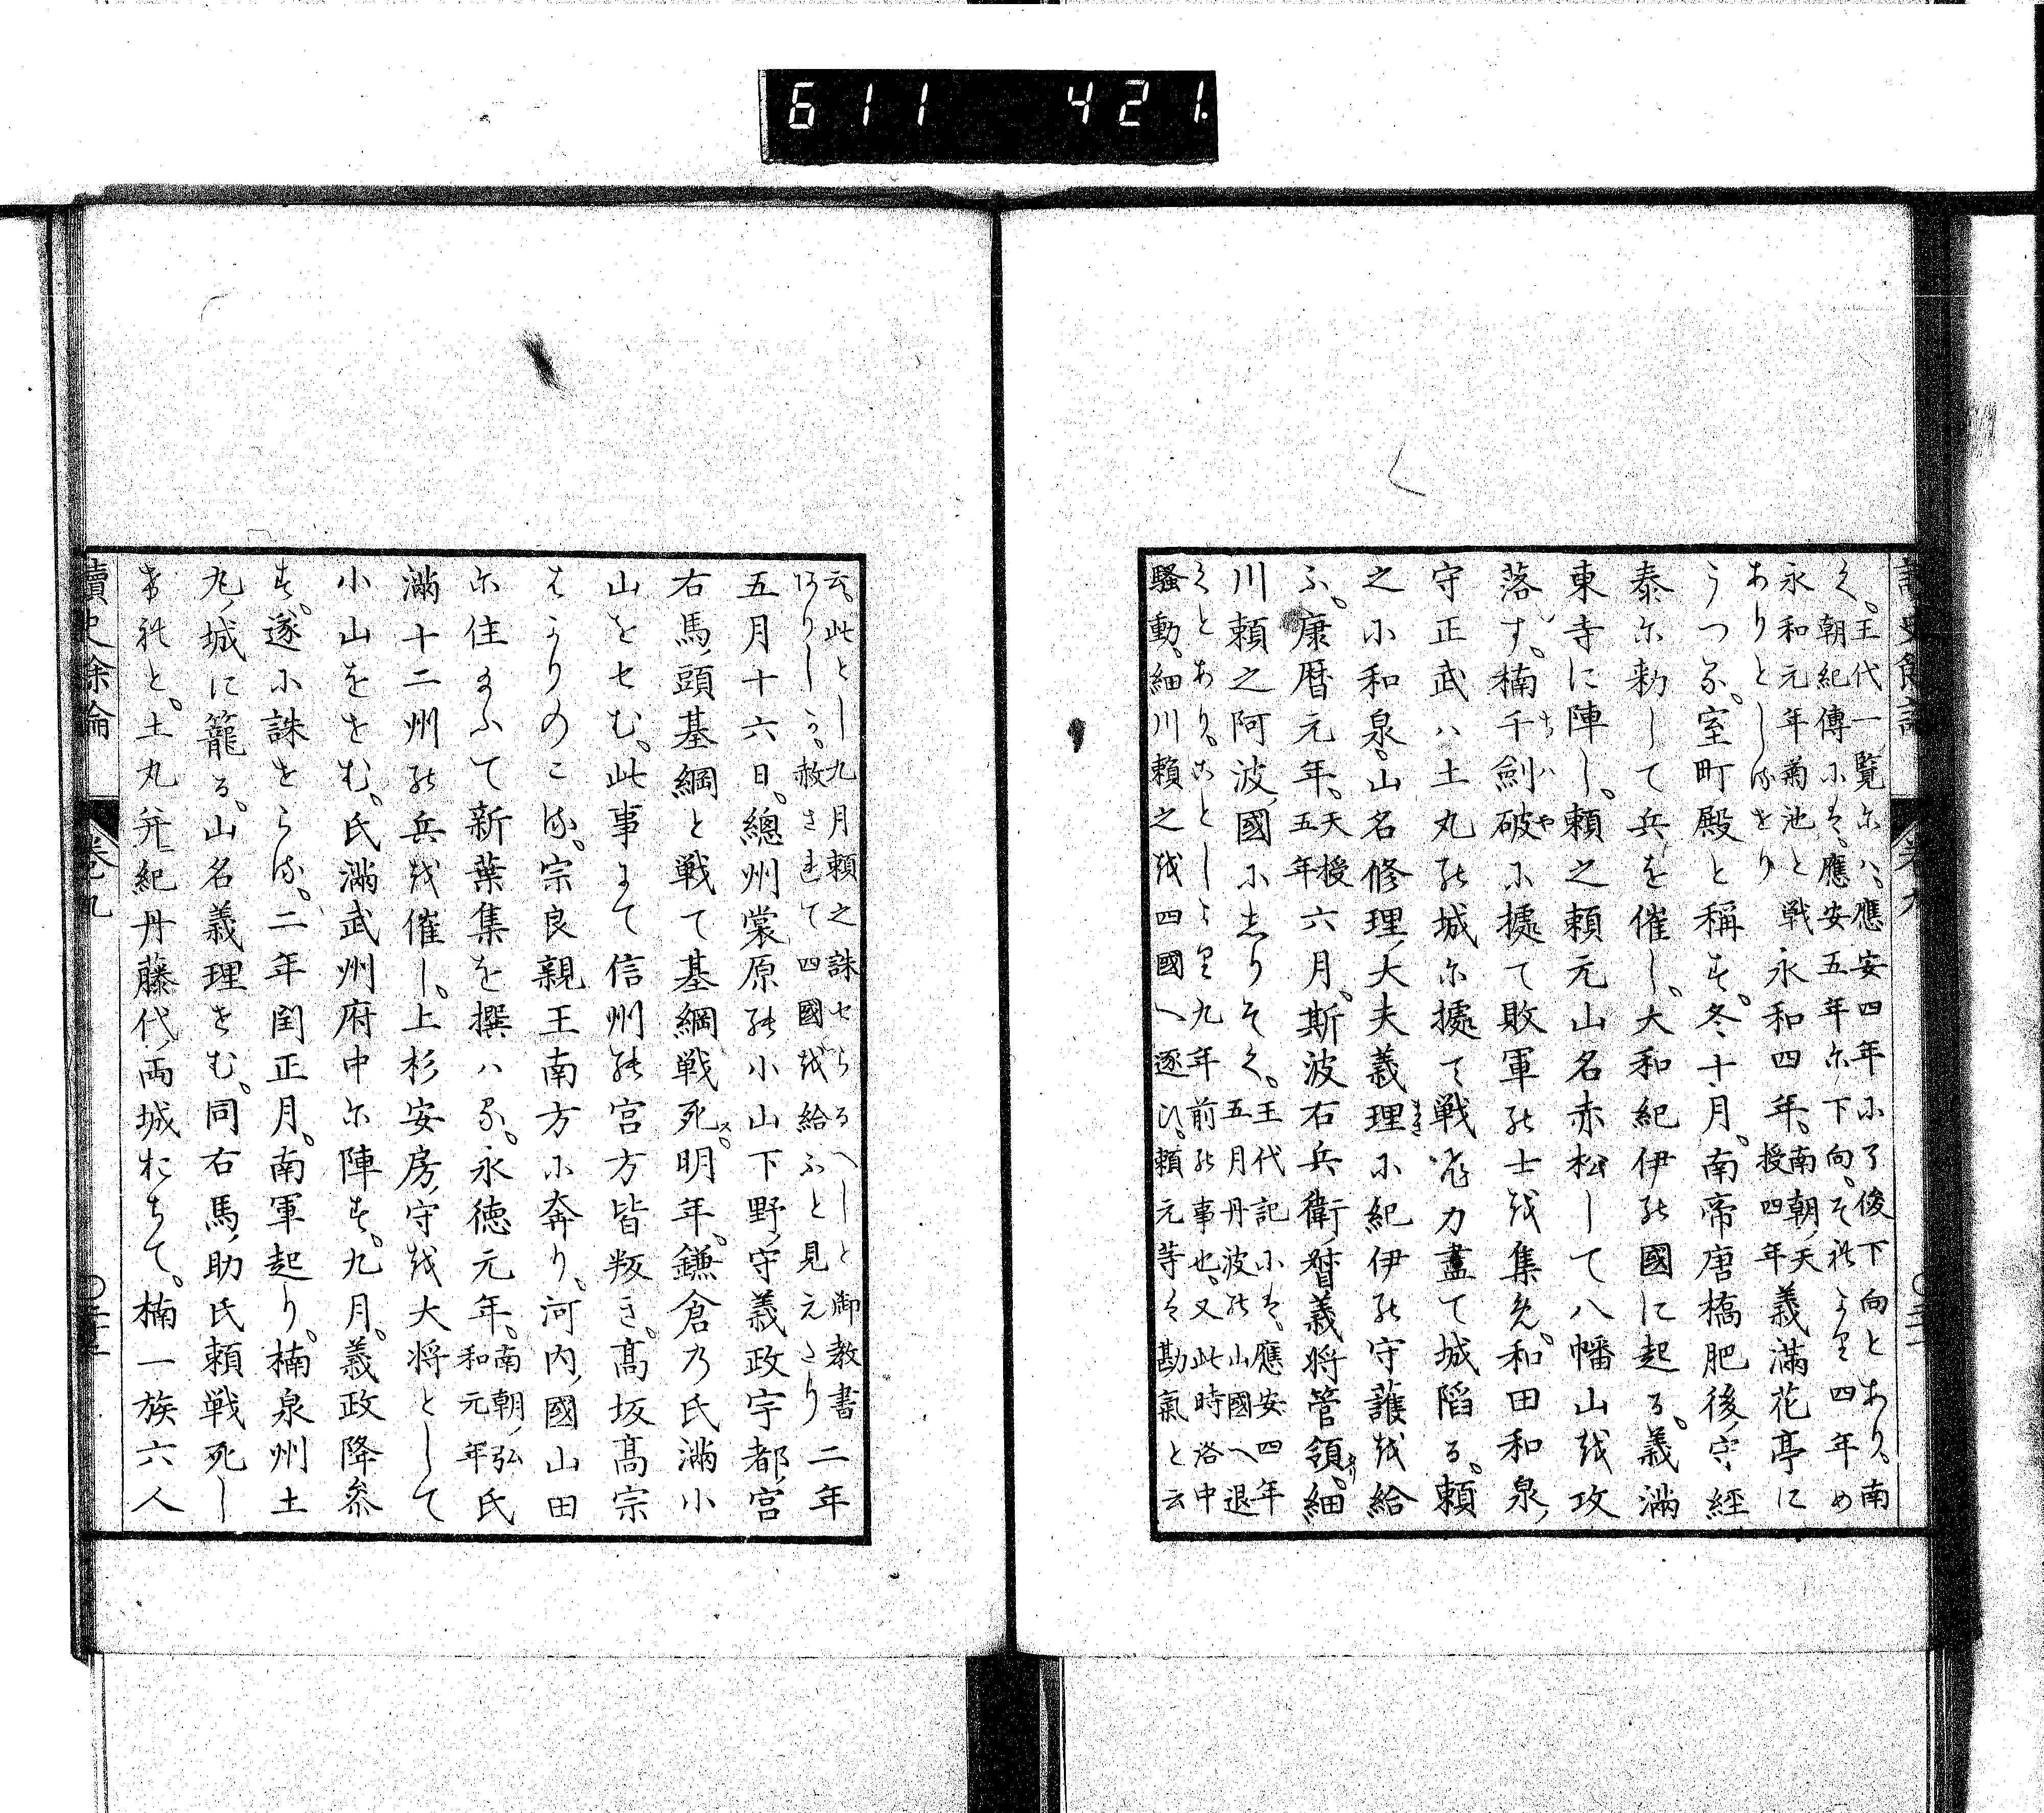 611 421.
く。王代一覧尓ハ、應安四年小了俊下向とあり、南
朝紀傳小は、應安五年尓下向。それより四年め
永和元年菊池と戦
ありとしるせり
永和四年。南朝、天
授四年義満花亭に
うつる。室町殿と稱す。冬十月。南帝唐橋肥後、守經
泰尓勅して兵を催し。大和紀伊の國に起る。義満
東寺に陣し。頼之頼元山名赤松して八幡山を攻
落す。楠千劍破小據て敗軍の士を集め。和田和泉、
守正武ハ土丸の城尓據て戦ひ力盡て城陷る。頼
之小和泉。山名修理、大夫義理小紀伊の守護を給
ふ。康暦元年。天授
五年六月。斯波右兵衛、督義将管領。細
川頼之阿波、國小しりそく。王代記小は、應安四年
五月丹波の山國へ退
くとあり。ことしより九年前の事也。又此時洛中
騒動。細川頼之を四國へ逐ひ。頼元等は勘氣と云
云。此とし九月頼之誅せらるへしと御教書
ありしか。赦されて四國を給ふと見えたり二年
五月十六日。總州裳原の小山下野、守義政宇都、宮
右馬、頭基綱と戦て基綱戦死ス。明年。鎌倉乃氏満小
山をせむ。此事まて信州の宮方皆叛き。髙坂髙宗
はかりのこる。宗良親王南方小奔り。河内、國山田
尓住まふて新葉集を撰ハる。永徳元年。南朝、弘
和元年氏
満十二州の兵を催し。上杉安房、守を大将として
小山をせむ。氏満武州府中尓陣す。九月。義政降参
す。遂小誅せらる。二年閏正月。南軍起り。楠泉州土
丸、城に籠る。山名義理せむ。同右馬、助氏頼戦死し
けれと。土丸并紀丹藤代、両城おちて。楠一族六人
讀史餘論 卷九